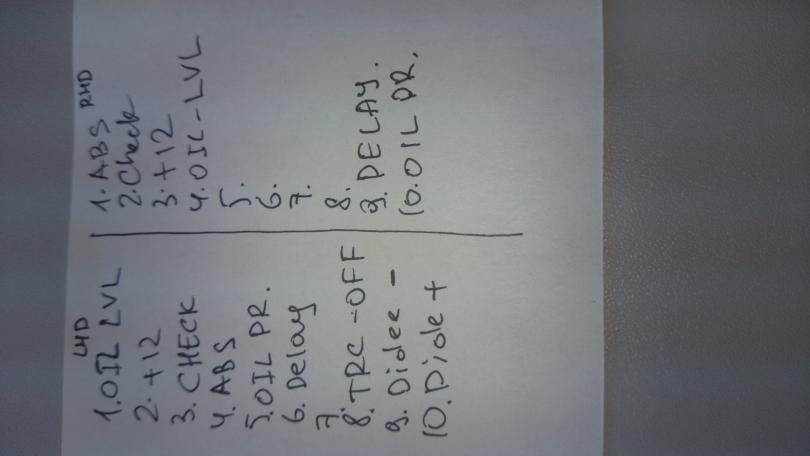 LHD
1. OIL LVL
2. +12
3. CHECK
4. ABS
5. OIL PR.
6. Delay
7.
8. TRC-OFF
9. Didee -
10. Diode +
RHD
1. ABS
2. Check
3. +12
4. OIL-LVL
5.
6.
7.
8.
9. DELAY.
10. OIL PR.